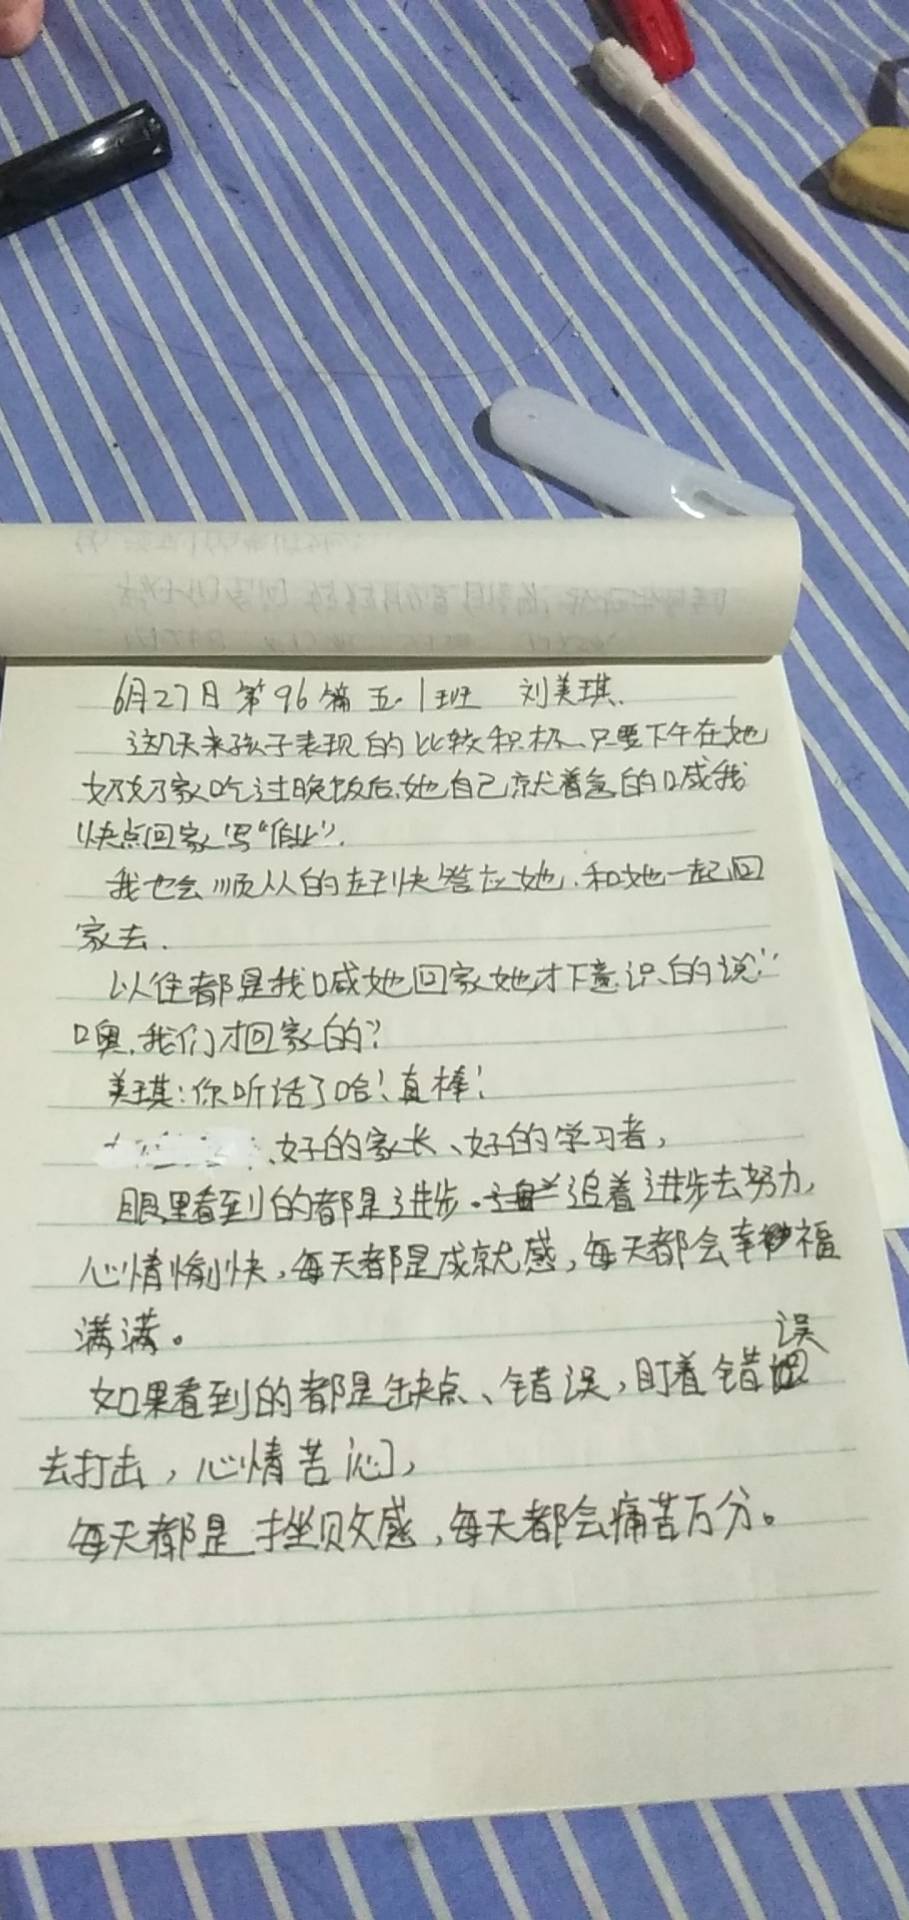 6月27日第96篇五.1班 刘美琪.
这几天来孩子表现的比较积极、只要下午在她
奶奶家吃过晚饭后,她自己就着急的喊我
快点回家写“作业”.
我也会顺从的赶快答应她.和她一起回
家去.
以往都是我喊她回家她才下意识的说“
噢,我们才回家的?
美琪:你听话了哈!真棒!
、好的家长、好的学习者,
眼里看到的都是进步。追着进步去努力,
心情愉快,每天都是成就感,每天都会幸福
满满。
误
如果看到的都是缺点、错误,盯着错
去打击,心情苦闷,
每天都是挫败感,每天都会痛苦万分。